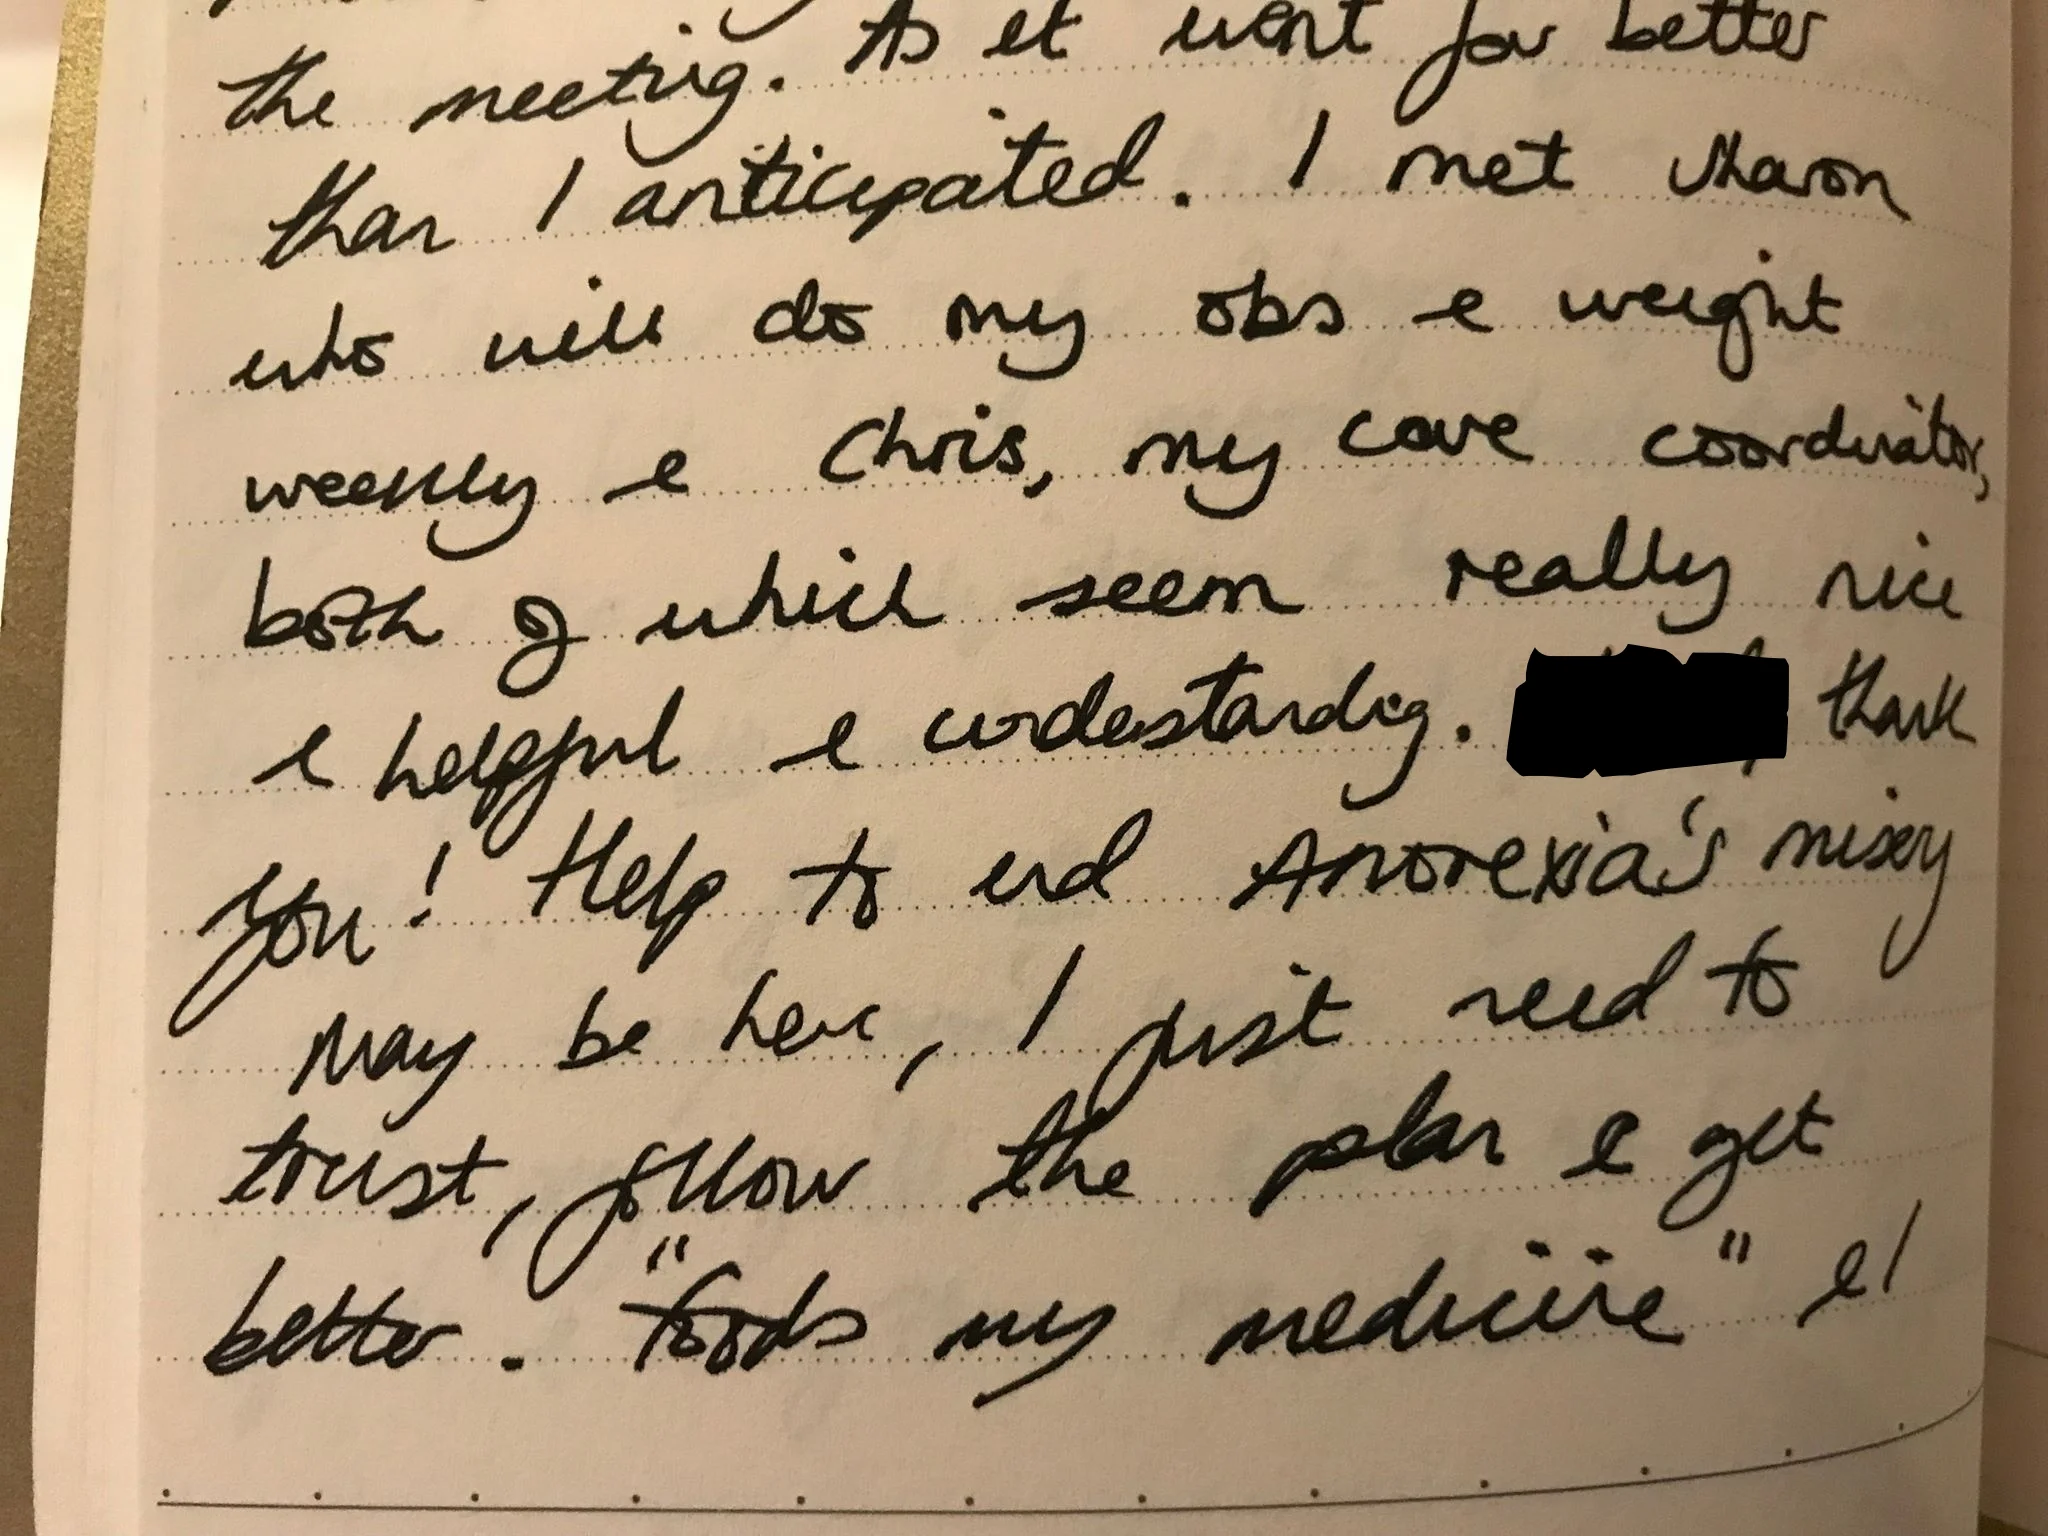 the meeting. As it went far better
than I anticipated. I met Sharon
who will do my obs & weight
weekly & Chris, my care coordinator,
both of which seem really nice
& helpful & understanding. thank
you! Help to end Anorexia's misery
may be here, I just need to
trust, follow the plan & get
better. "foods my medicine" & I